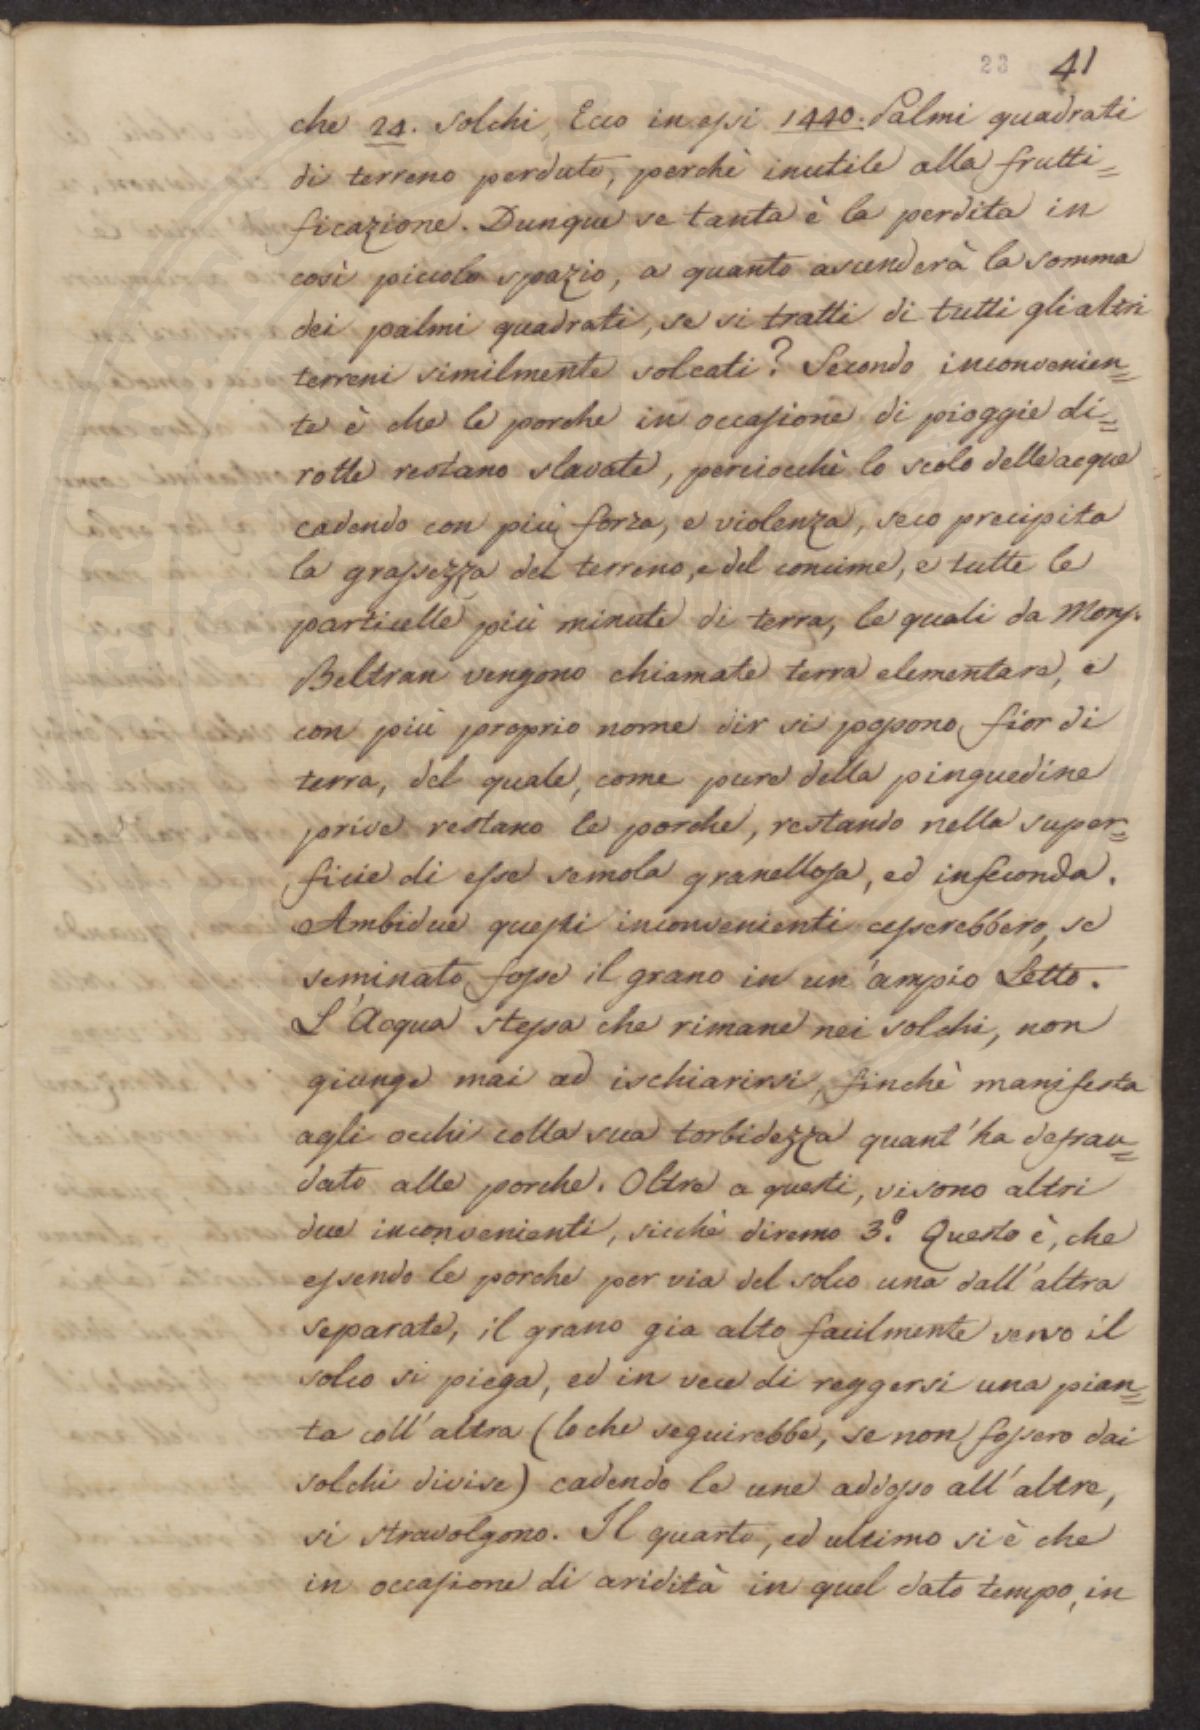 23 41
che 24. solchi, Ecco in essi 1440. Palmi quadrati
di terreno perduto, perchè inutile alla frutti=
ficazione. Dunque se tanta è la perdita in
così piccolo spazio, a quanto ascenderà la somma
dei palmi quadrati, se si tratti di tutti gli altri
terreni similmente solcati? Secondo inconvenien=
te è che le porche in occasione di pioggie di=
rotte restano slavate, perciocchè lo scolo delle acque
cadendo con più forza, e violenza, seco precipita
la grassezza del terreno, e del concime, e tutte le
particelle più minute di terra, le quali da Mons.
Beltran vengono chiamate terra elementare, e
con più proprio nome dir si possono fior di
terra, del quale, come pure della pinguedine
prive restano le porche, restando nella super=
ficie di esse semola granellosa, ed infeconda.
Ambidue questi inconvenienti cesserebbero, se
seminato fosse il grano in un'ampio Letto.
L'Acqua stessa che rimane nei solchi, non
giunge mai ad ischiarirsi, finchè manifesta
agli occhi colla sua torbidezza quant'ha defrau=
dato alle porche. Oltre a questi, vi sono altri
due inconvenienti, sicchè diremo 3.º Questo è, che
essendo le porche per via del solco una dall'altra
separate, il grano gia alto facilmente verso il
solco si piega, ed in vece di reggersi una pian=
ta coll'altra (lo che seguirebbe, se non fossero dai
solchi divise) cadendo le une addosso all'altre,
si stravolgono. Il quarto, ed ultimo si è che
in occasione di aridità in quel dato tempo, in